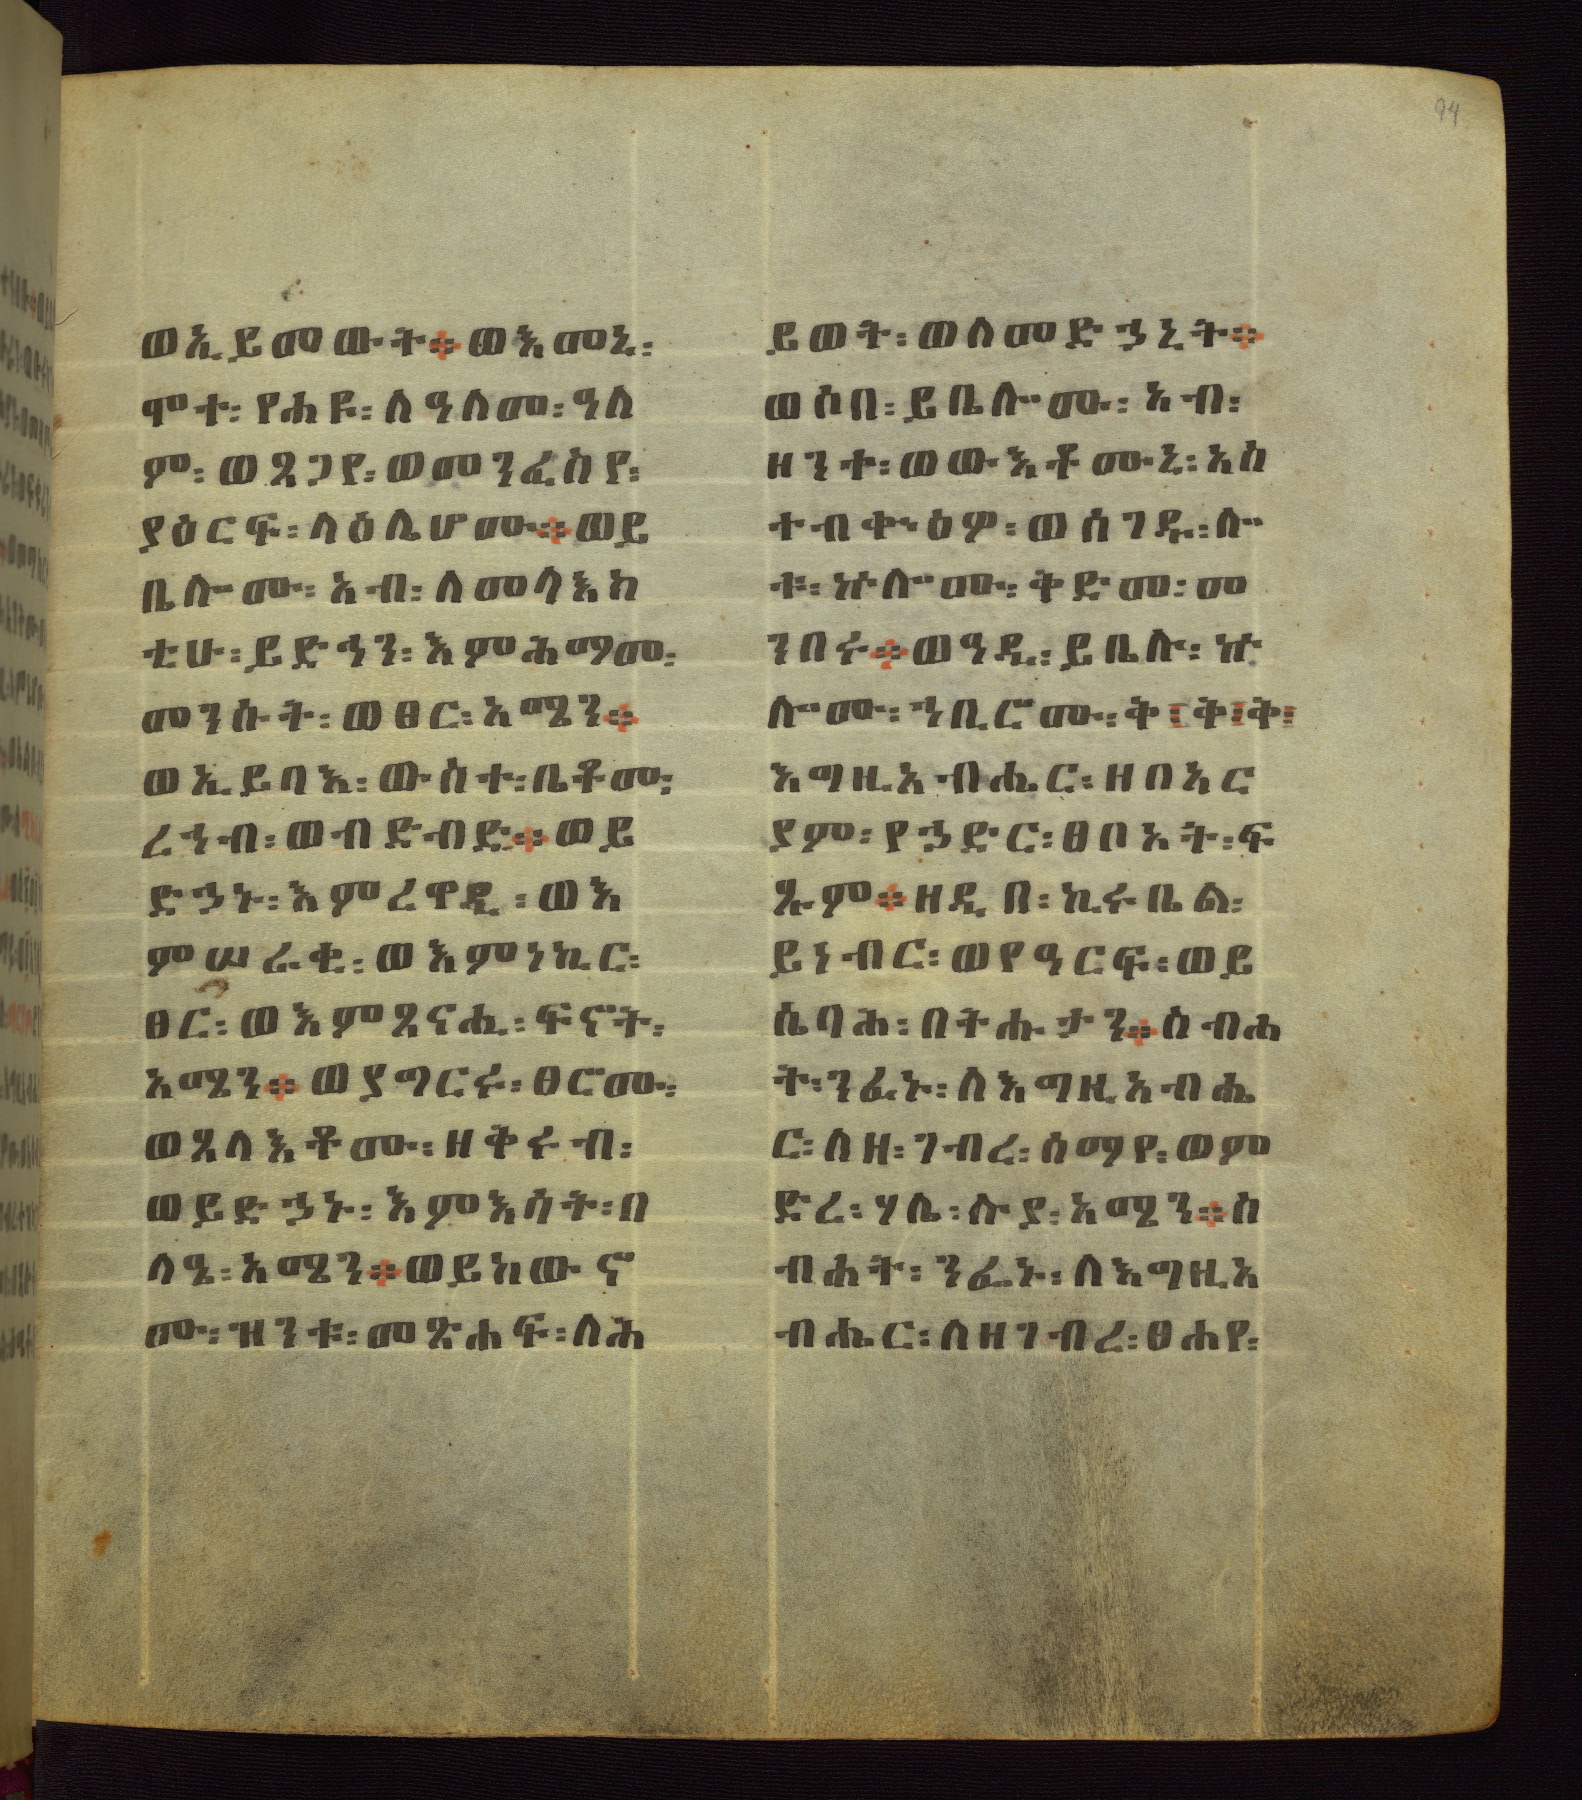 94
ወኢይመውት፨ወእመኒ፡
ሞተ፡የሐዩ፡ለዓለመ፡ዓለ
ም፡ወጸጋየ፡ወመንፈስየ፡
ያዕርፍ፡ላዕሌሆሙ፨ወይ
ቤሎሙ፡አብ፡ለመላእክ
ቲሁ፡ይድኅን፡እምሕማመ፡
መንሱት፡ወፀር፡አሜን፨
ወኢይባእ፡ውስተ፡ቤቶመ፡
ረኅብ፡ወብድብድ፨ወይ
ድኃኑ፡እምረዋዲ፡ወእ
ምሠራቂ፡ወእምነኪር፡
ፀር፡ወእምጸናሒ፡ፍኖት፡
አሜን፨ወያግርሩ፡ፀሮሙ፡
ወጸላእቶሙ፡ዘቅሩብ፡
ወይድኃኑ፡እምእሳት፡በ
ላዔ፡አሜን፨ወይከውኖ
ሙ፡ዝንቱ፡መጽሐፍ፡ለሕ
ይወት፡ወለመድኃኒት፨
ወሶበ፡ይቤሎሙ፡አብ፡
ዘንተ፡ወውእቶሙኒ፡አስ
ተብቍዕዎ፡ወሰገዱ፡ሎ
ቱ፡ኵሎሙ፡ቅድመ፡መ
ንበሩ፨ወዓዲ፡ይቤሉ፡ኵ
ሎሙ፡ኅቢሮሙ፡ቅ፡ቅ፡ቅ፡
እግዚአብሔር፡ዘበአር
ያም፡የኃድር፡ፀባኦት፡ፍ
ጹም፨ዘዲበ፡ኪሩቤል፡
ይነብር፡ወየዓርፍ፡ወይ
ሴባሕ፡በትሑታን፨ስብሐ
ት፡ንፌኑ፡ለእግዚአብሔ
ር፡ለዘ፡ገብረ፡ሰማየ፡ወም
ድረ፡ሃሌ፡ሉያ፡አሜን፨ስ
ብሐት፡ንፌኑ፡ለእግዚአ
ብሔር፡ለዘገብረ፡ፀሐየ፡